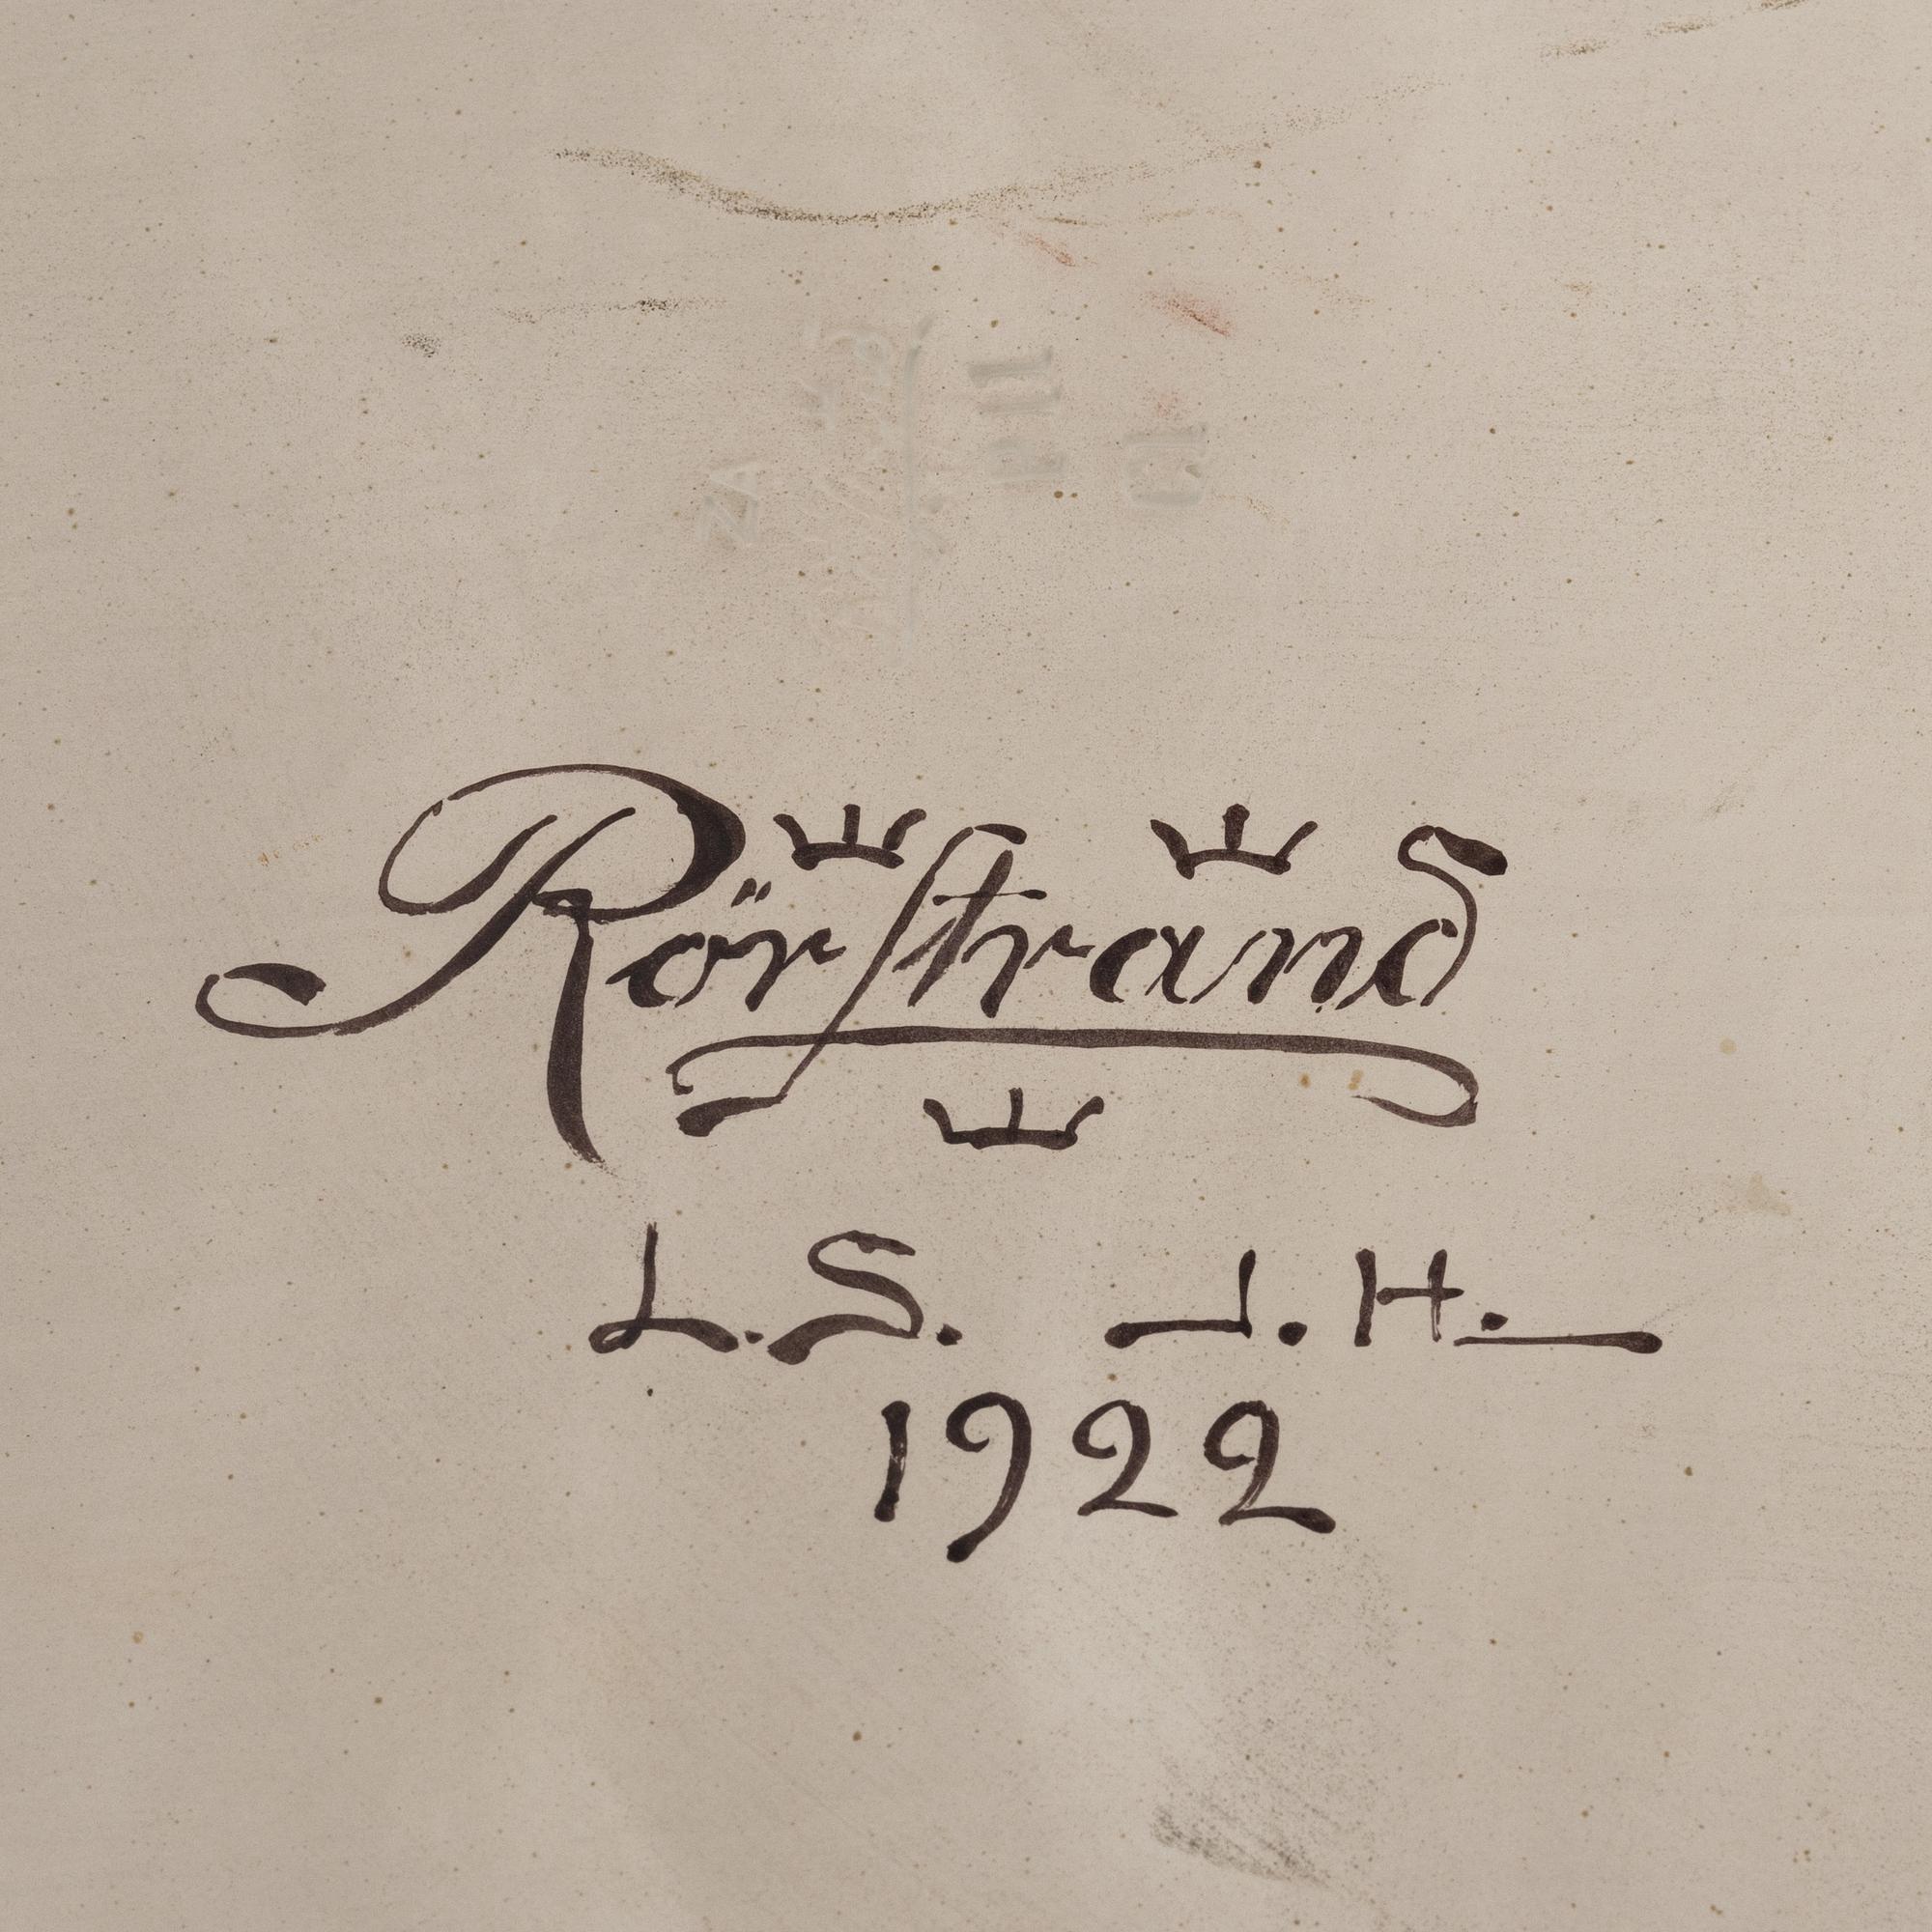 Rörstrand
L.S. J.H.
1922